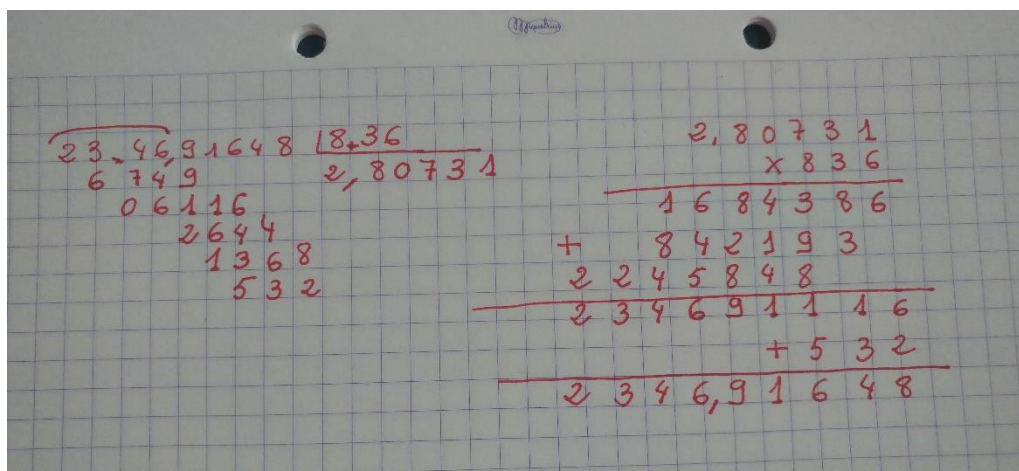 23.46,91648 | 8.36
6 749 2,80731
06116
2644
1368
532
2,80731
x 836
1684386
+ 842193
2245848
234691116
+ 532
2346,91648